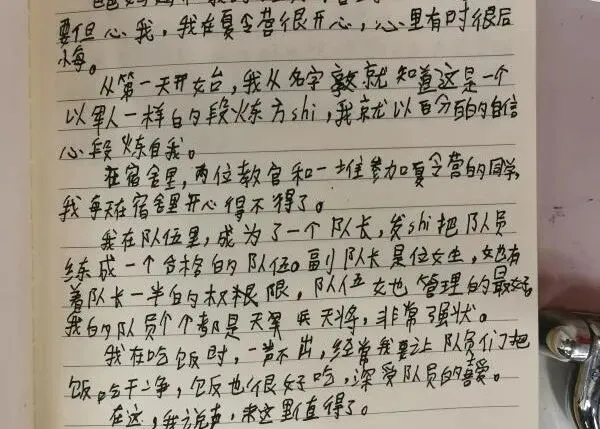 要但心我，我在夏令营很开心，心里有时很后
悔。
从第一天开始台，我从名字就知道这是一个
以军人一样的段炼方shi，我就以百分百的自信
心段炼自我。
在宿舍里，两位教官和一堆参加夏令营的同学，
我每天在宿舍里开心得不得了。
我在队伍里，成为了一个队长，发shi把队员
练成一个合格的队伍。副队长是位女生，她有
着队长一半的权限，队伍她管理的最好，
我的队员个个都是天兵天将，非常强状。
我在吃饭时，一声不出，经常我要让队员们把
饭吃干净，饭也很好吃，深受队员的喜爱。
在这，我说声，来这里值得了。